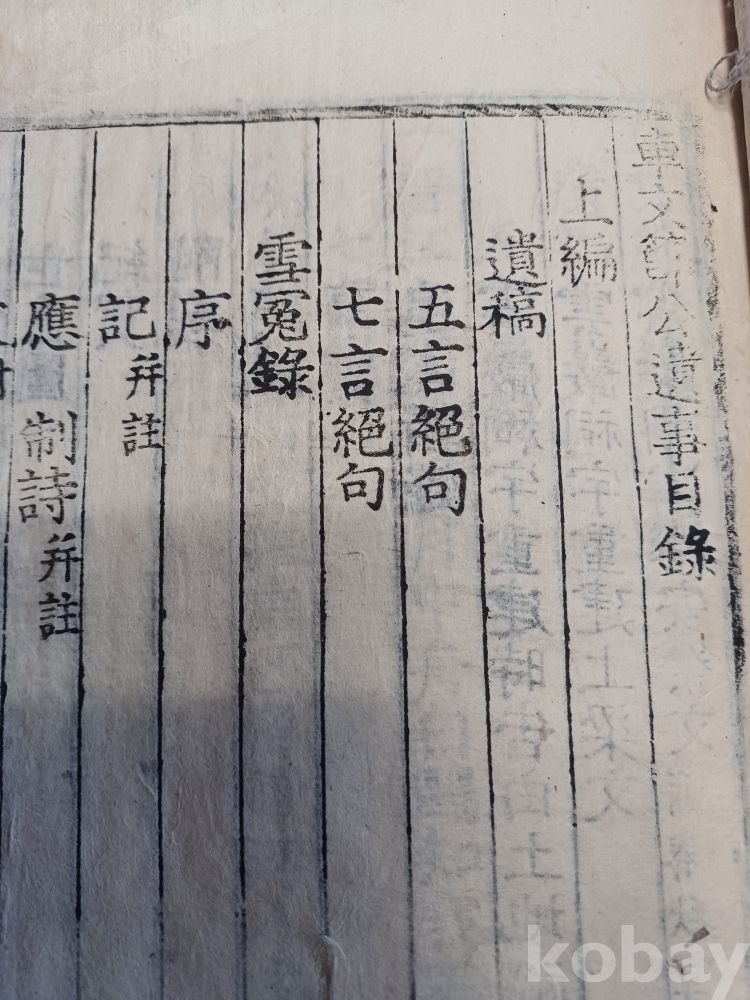 車文節公遺事目錄
上編
遺稿
五言絕句
七言絕句
雪冤錄
序
記并註
應制詩并註
kobay